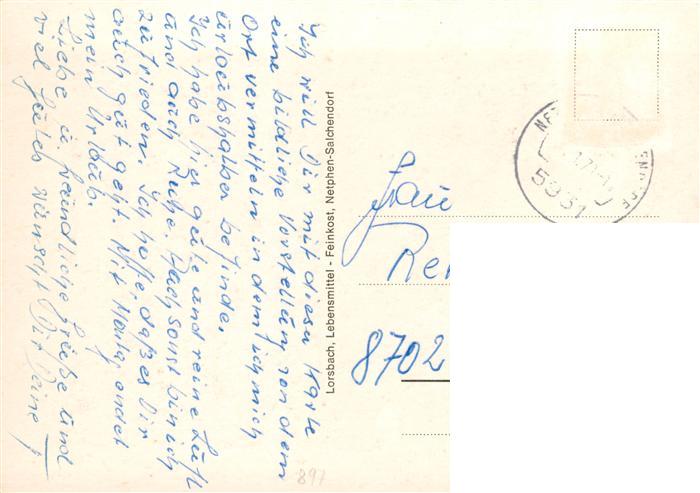 Ich will Dir mit dieser Karte
eine bildliche Vorstellung von dem
Ort vermitteln in dem ich mich
urlaubshalber befinde.
Ich habe hier gute und reine Luft
und auch Ruhe. Auch sonst bin ich
zufrieden. Ich hoffe, daß es Dir
auch gut geht. Mit Montag endet
mein Urlaub.
Liebe u. freundliche Grüße und
viel Gutes wünscht Dir Deine
Lorsbach, Lebensmittel - Feinkost, Netphen-Salchendorf
5931
Frau
8702
897